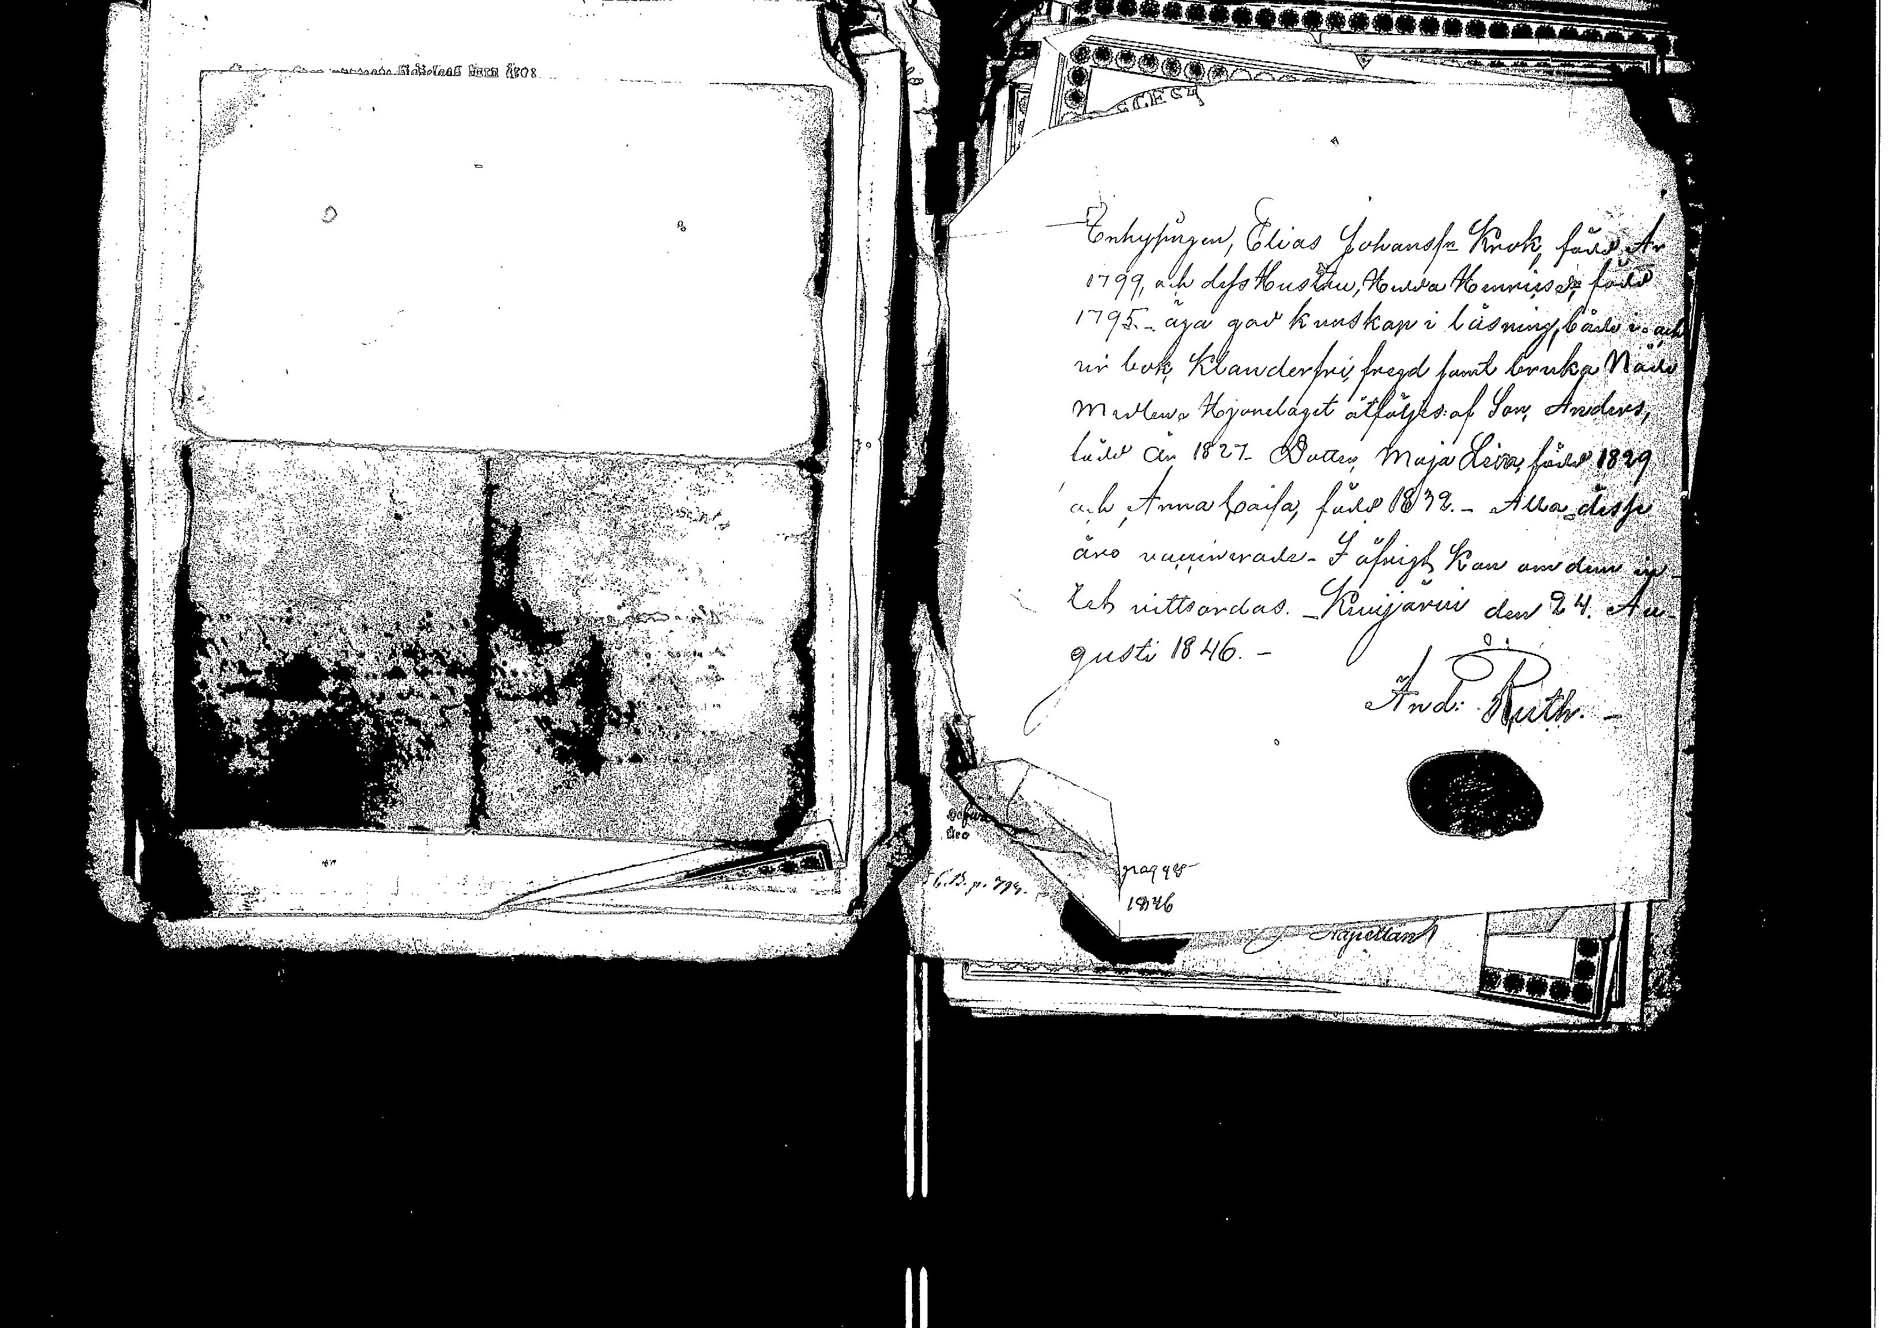 Enhysingen, Elias Johanss:n Krok, född År
1799, och dess Hustru, Hedda Henriksd:r född
1795 - äga god kunskap i läsning, både i- och
ur bok, Klanderfri frejd samt bruka Nåde
Medlen. Hjonelaget åtföljes af Son, Anders,
född År 1827 - Dotter, Maja Lisa, född 1829
och Anna Caisa, född 1832. - Alla desse
äro vaccinerade - I öfrigt Kan om dem in-
tet vittsordas. - Kivijärvi den 24. Au-
gusti 1846. -
And: Ruth. -
1846
Kapellan